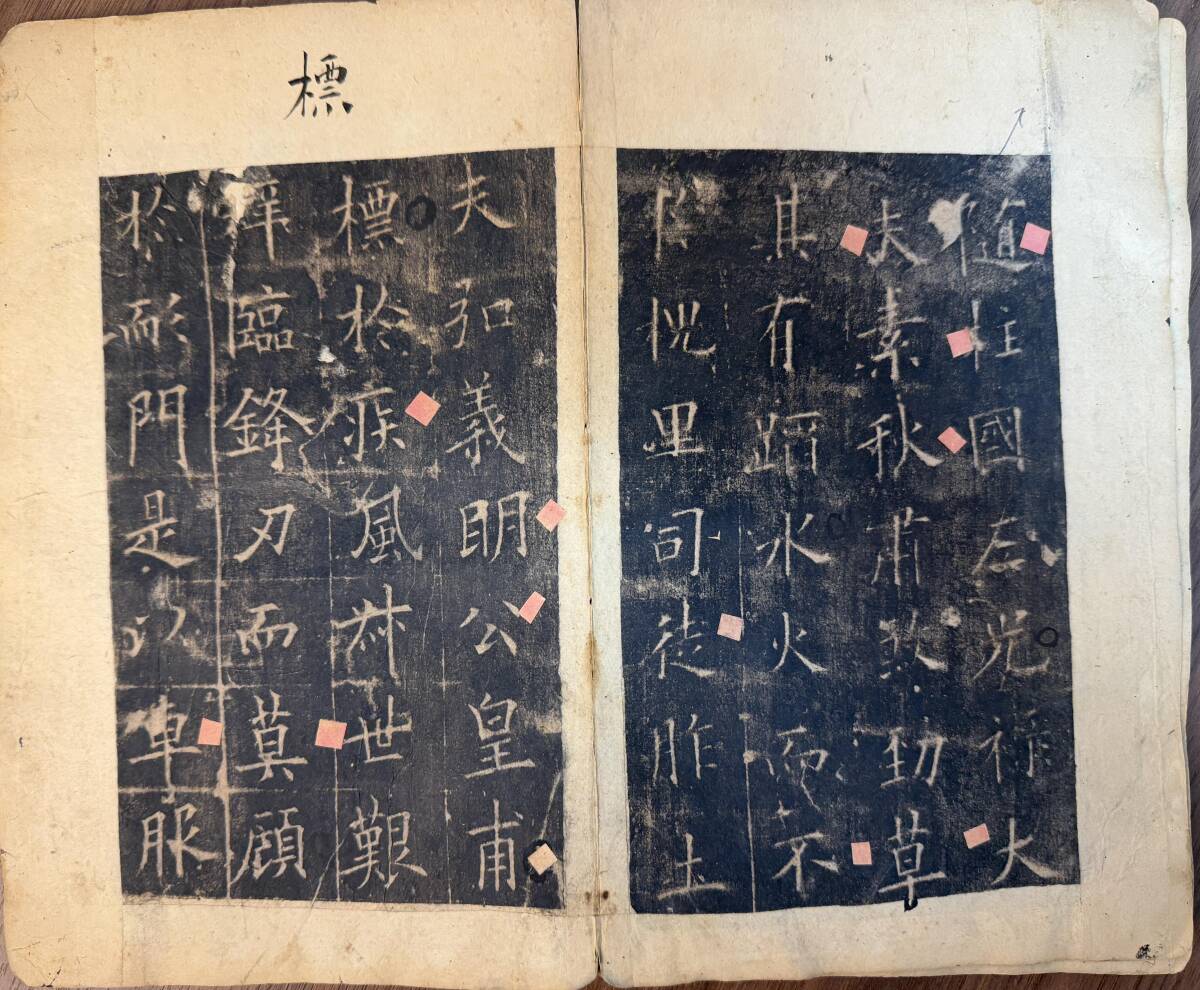 隨柱國左光祿大
夫素秋肅煞勁草
其有蹈水火而不
槐里司徒胙土
標
夫弘義明公皇甫
標於疾風叔世艱
辝臨鋒刃而莫顧
於耏門是以車服